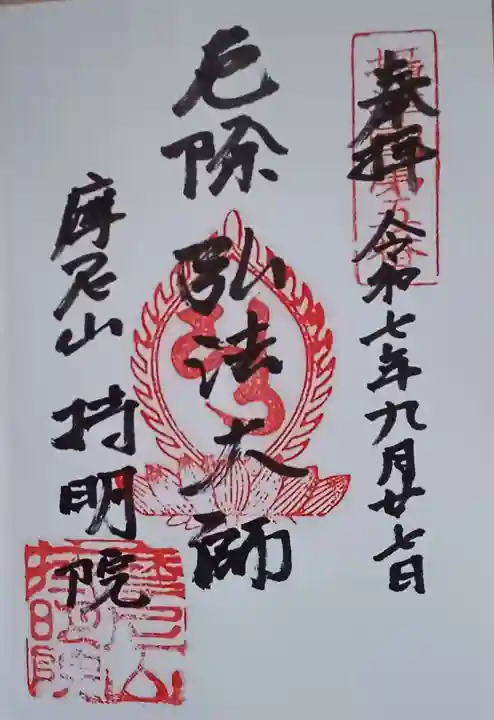 奉拝
令和七年九月廿七日
厄除
弘法大師
摩尼山 持明院
摩尼山
持明院